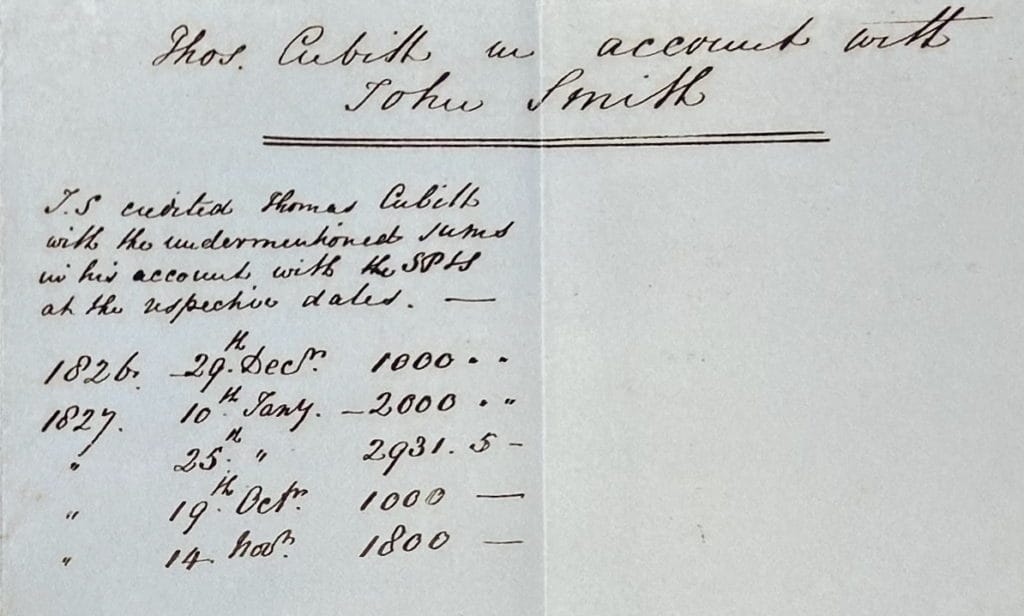 Thos. Cubitt in account with
John Smith
J.S credited Thomas Cubitt
with the undermentioned sums
in his account with the SPLS
at the respective dates. —
1826. 29.th Decr. 1000 " "
1827. 10th Jany. — 2000 " "
" 25.th " 2931. 5 -
" 19.th Octr. 1000 —
" 14. Novr. 1800 —